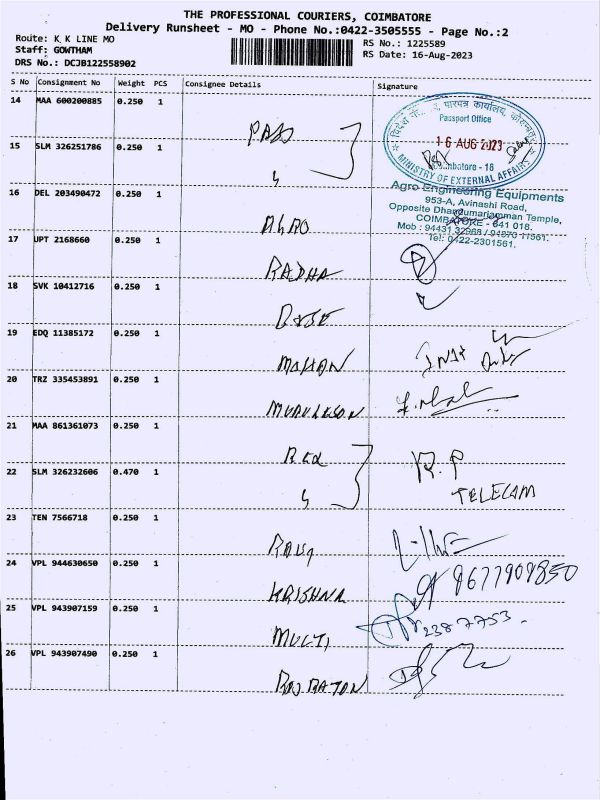 THE PROFESSIONAL COURIERS, COIMBATORE
Delivery Runsheet - MO - Phone No.:0422-3505555 - Page No.:2
Route: K K LINE MO
Staff: GOWTHAM
DRS No.: DCJB122558902
RS No.: 1225589
RS Date: 16-Aug-2023
S No Consignment No Weight PCS Consignee Details Signature
14 MAA 600200885 0.250 1
PASS
15 SLM 326251786 0.250 1
विदेश पारपत्र कार्यालय,
Passport Office
16 AUG 2023
Coimbatore - 18
MINISTRY OF EXTERNAL AFFAIRS
16 DEL 203490472 0.250 1
AGRO
Agro Engineering Equipments
953-A, Avinashi Road,
Opposite Dhandumariamman Temple,
COIMBATORE - 641 018.
Tel: 0422-2301561.
17 UPT 2168660 0.250 1
RADHA
18 SVK 10412716 0.250 1
19 EDQ 11385172 0.250 1
MOHAN
20 TRZ 335453891 0.250 1
MURUGESON
21 MAA 861361073 0.250 1
22 SLM 326232606 0.470 1
R.P
TELECAM
23 TEN 7566718 0.250 1
24 VPL 944630650 0.250 1
KRISHNA
9677909850
25 VPL 943907159 0.250 1
MULTI
2387753
26 VPL 943907490 0.250 1